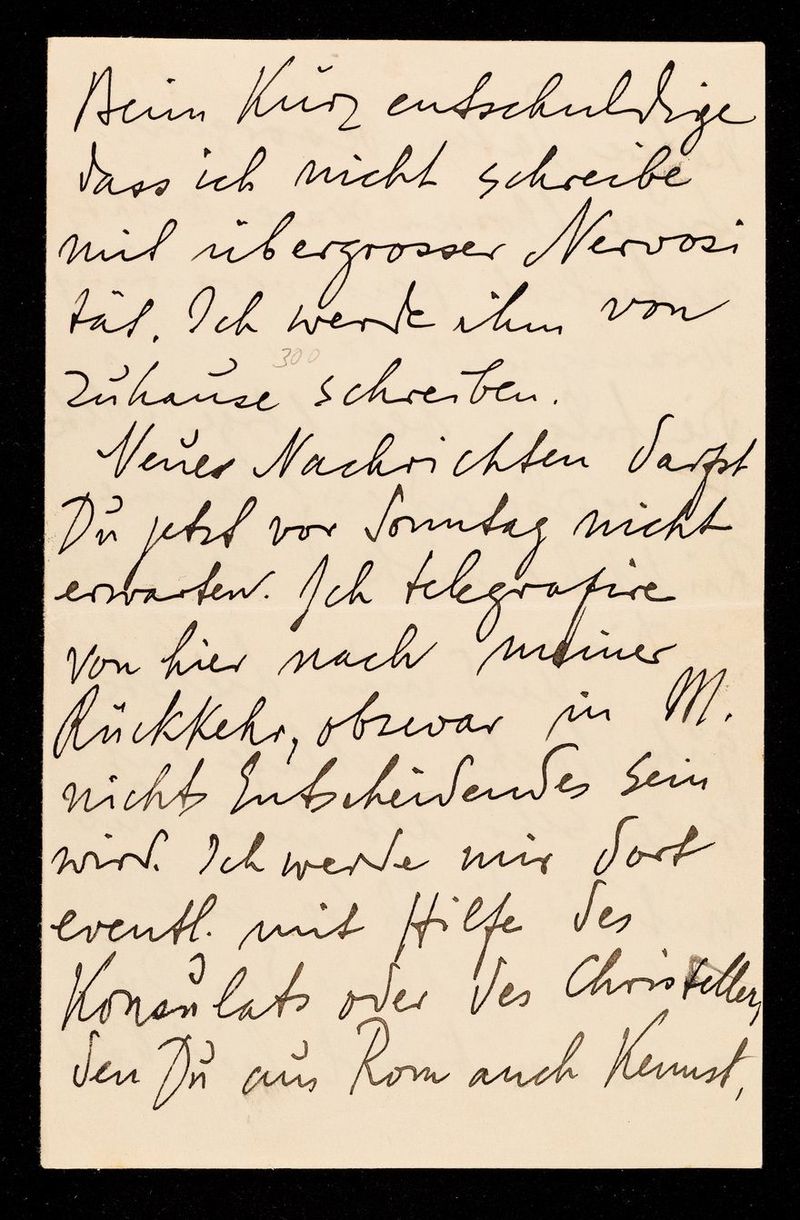 Beim Kurz entschuldige
dass ich nicht schreibe
mit übergrosser Nervosi
tät. Ich werde ihm von
300
Zuhause schreiben.
Neues Nachrichten darfst
Du jetzt vor Sonntag nicht
erwarten. Ich telegrafire
von hier nach meiner
Rückkehr, obzwar in M.
nichts Entscheidendes sein
wird. Ich werde mir dort
eventl. mit Hilfe des
Konsulats oder des Christeller,
den Du aus Rom auch kennst,